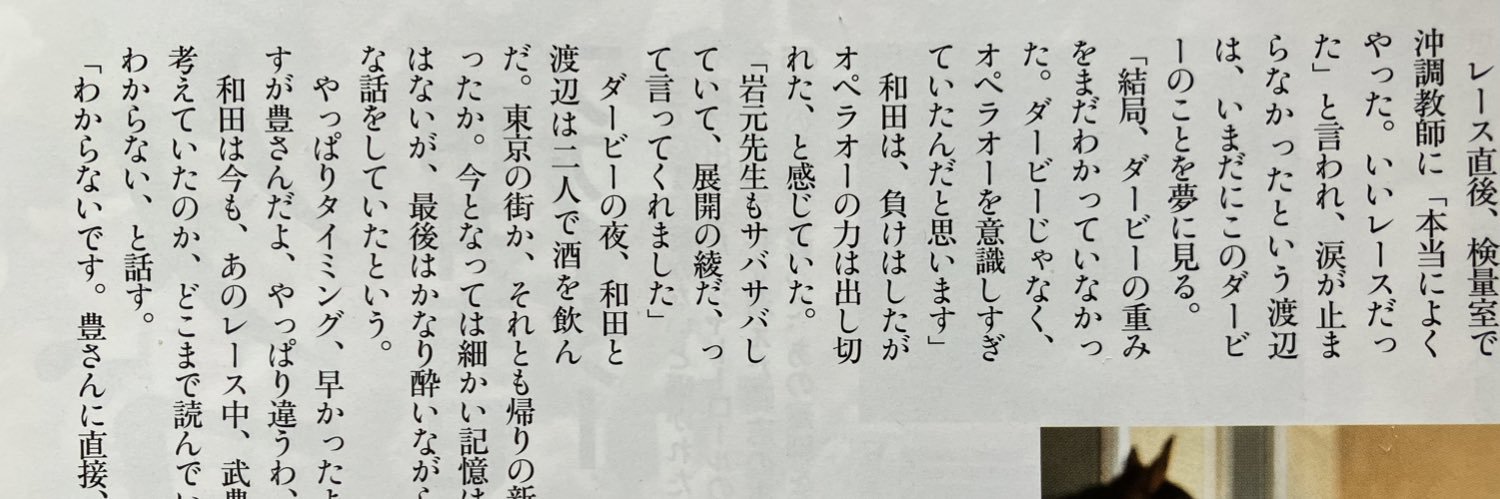 レース直後、検量室で
沖調教師に「本当によく
やった。いいレースだっ
た」と言われ、涙が止ま
らなかったという渡辺
は、いまだにこのダービ
ーのことを夢に見る。
「結局、ダービーの重み
をまだわかっていなかっ
た。ダービーじゃなく、
オペラオーを意識しすぎ
ていたんだと思います」
和田は、負けはしたが
オペラオーの力は出し切
れた、と感じていた。
「岩元先生もサバサバし
ていて、展開の綾だ、っ
て言ってくれました」
ダービーの夜、和田と
渡辺は二人で酒を飲ん
だ。東京の街か、それとも帰りの新
ったか。今となっては細かい記憶は
はないが、最後はかなり酔いながら
な話をしていたという。
やっぱりタイミング、早かったよ
すが豊さんだよ、やっぱ違うわ、
和田は今も、あのレース中、武豊
考えていたのか、どこまで読んでい
わからない、と話す。
「わからないです。豊さんに直接、